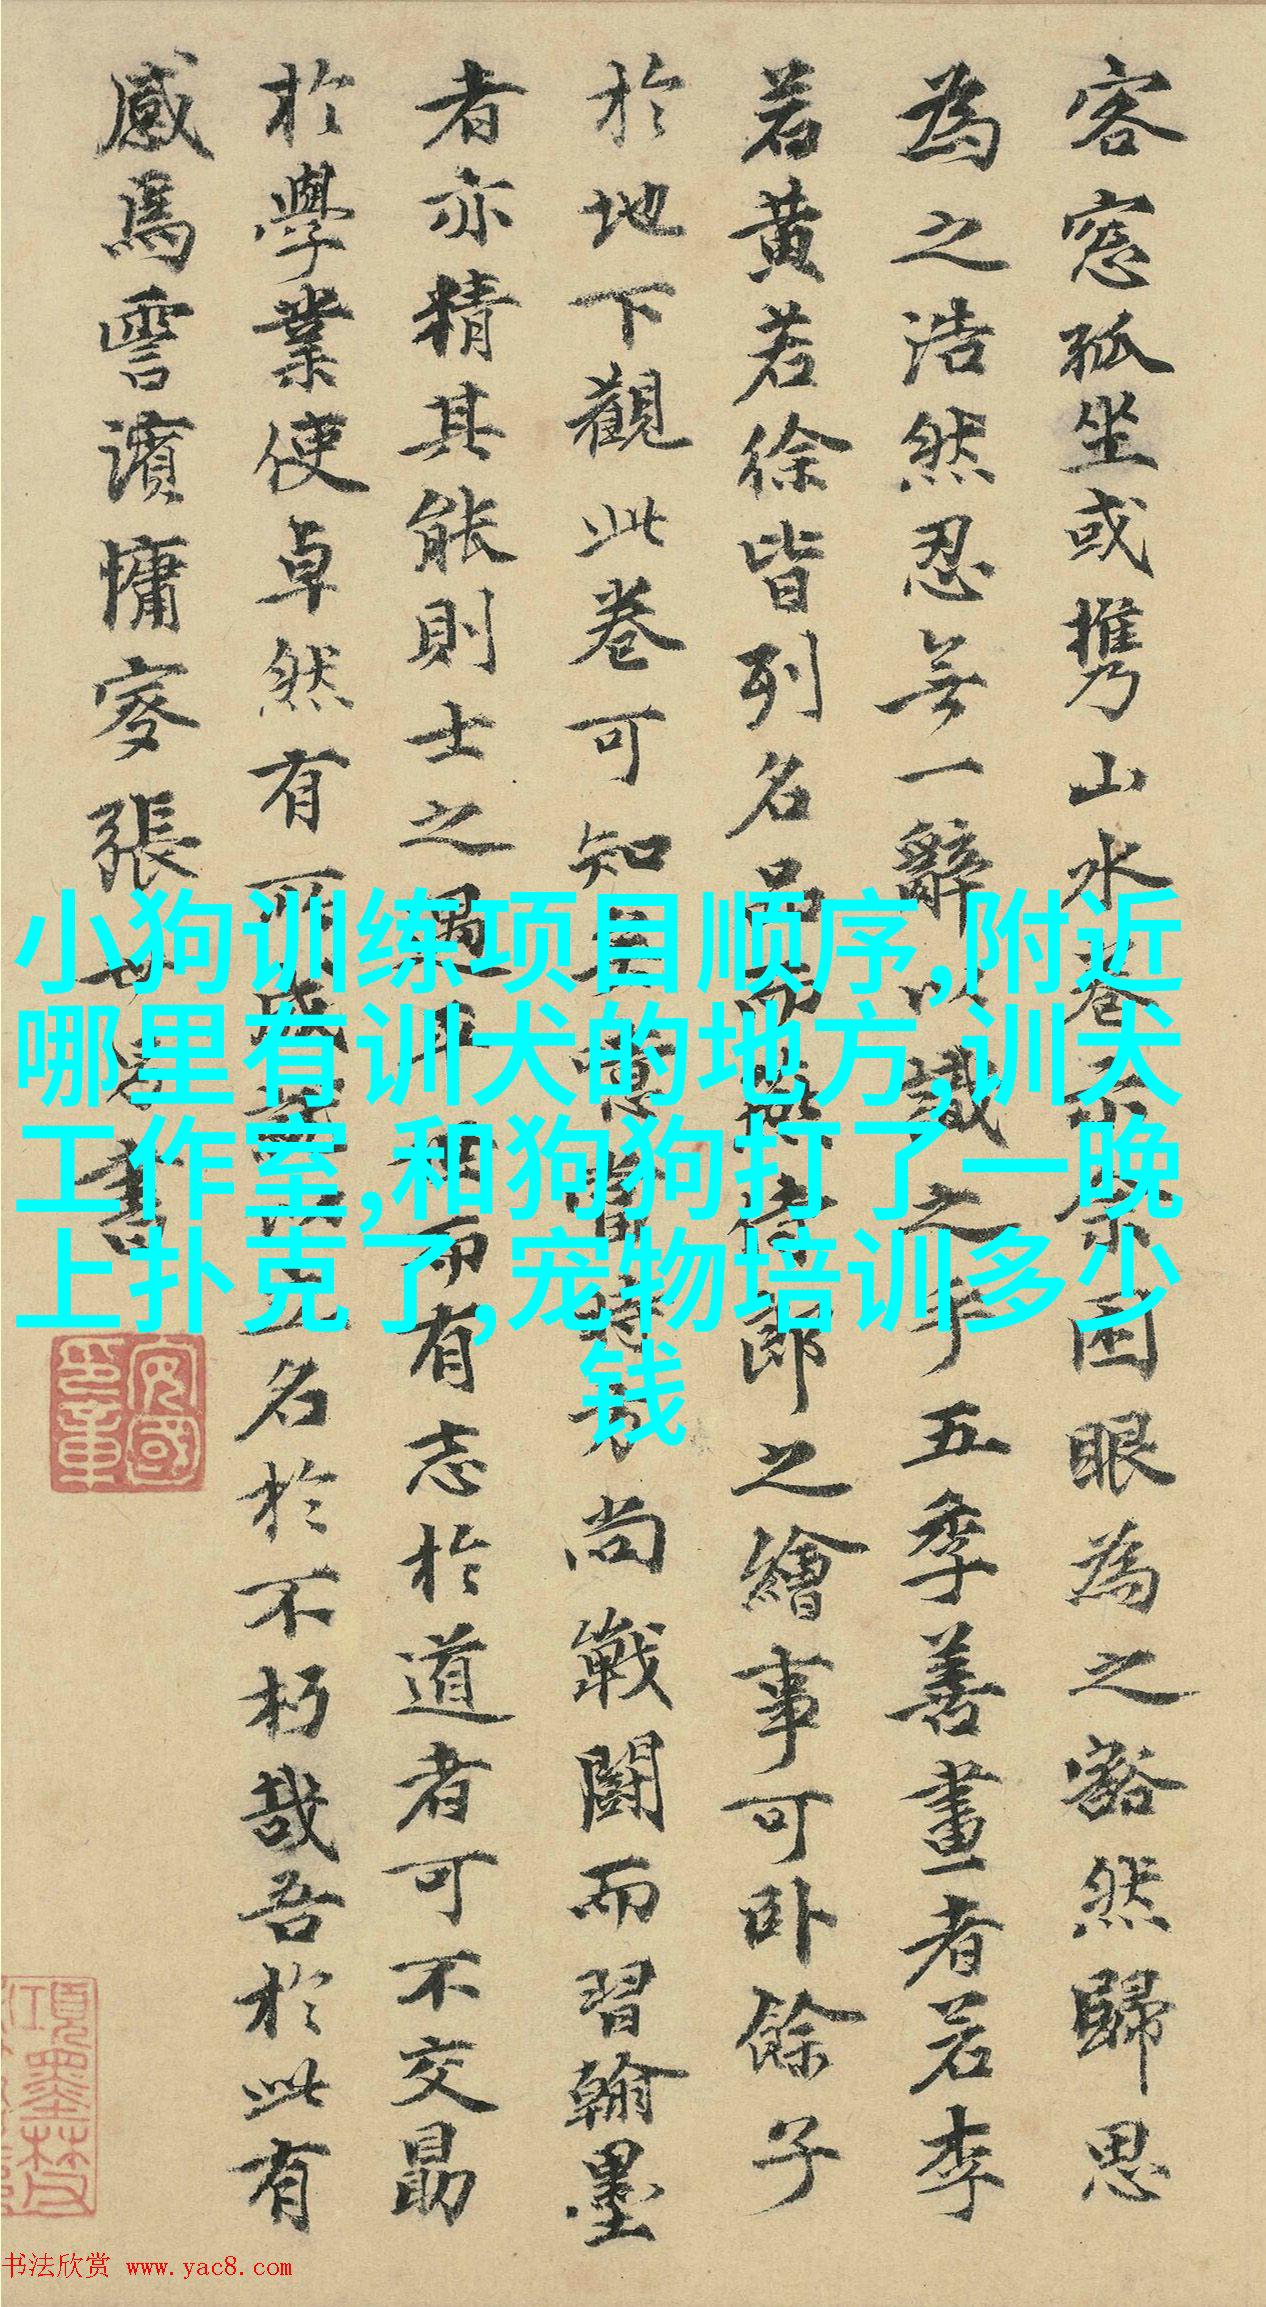 客窓孤坐或携山水卷不
困眼為之豁然歸思
為之浩然忍無一辭以識之乎五季善畫者若李
若黄若徐皆列名品而
郎之繪事可卧餘子
於地下觀此卷可知
尚戰鬪而習翰墨
者亦精其能則士之
而有志於道者可不交勗
於學業使卓然有所成
名於不朽哉吾於此有
感焉雲濱慵叟張
書
小狗训练项目顺序,附近
哪里有训犬的地方,训犬
工作室,和狗狗打了一晚
上扑克了,宠物培训多少
钱
书法欣赏 www.yac8.com